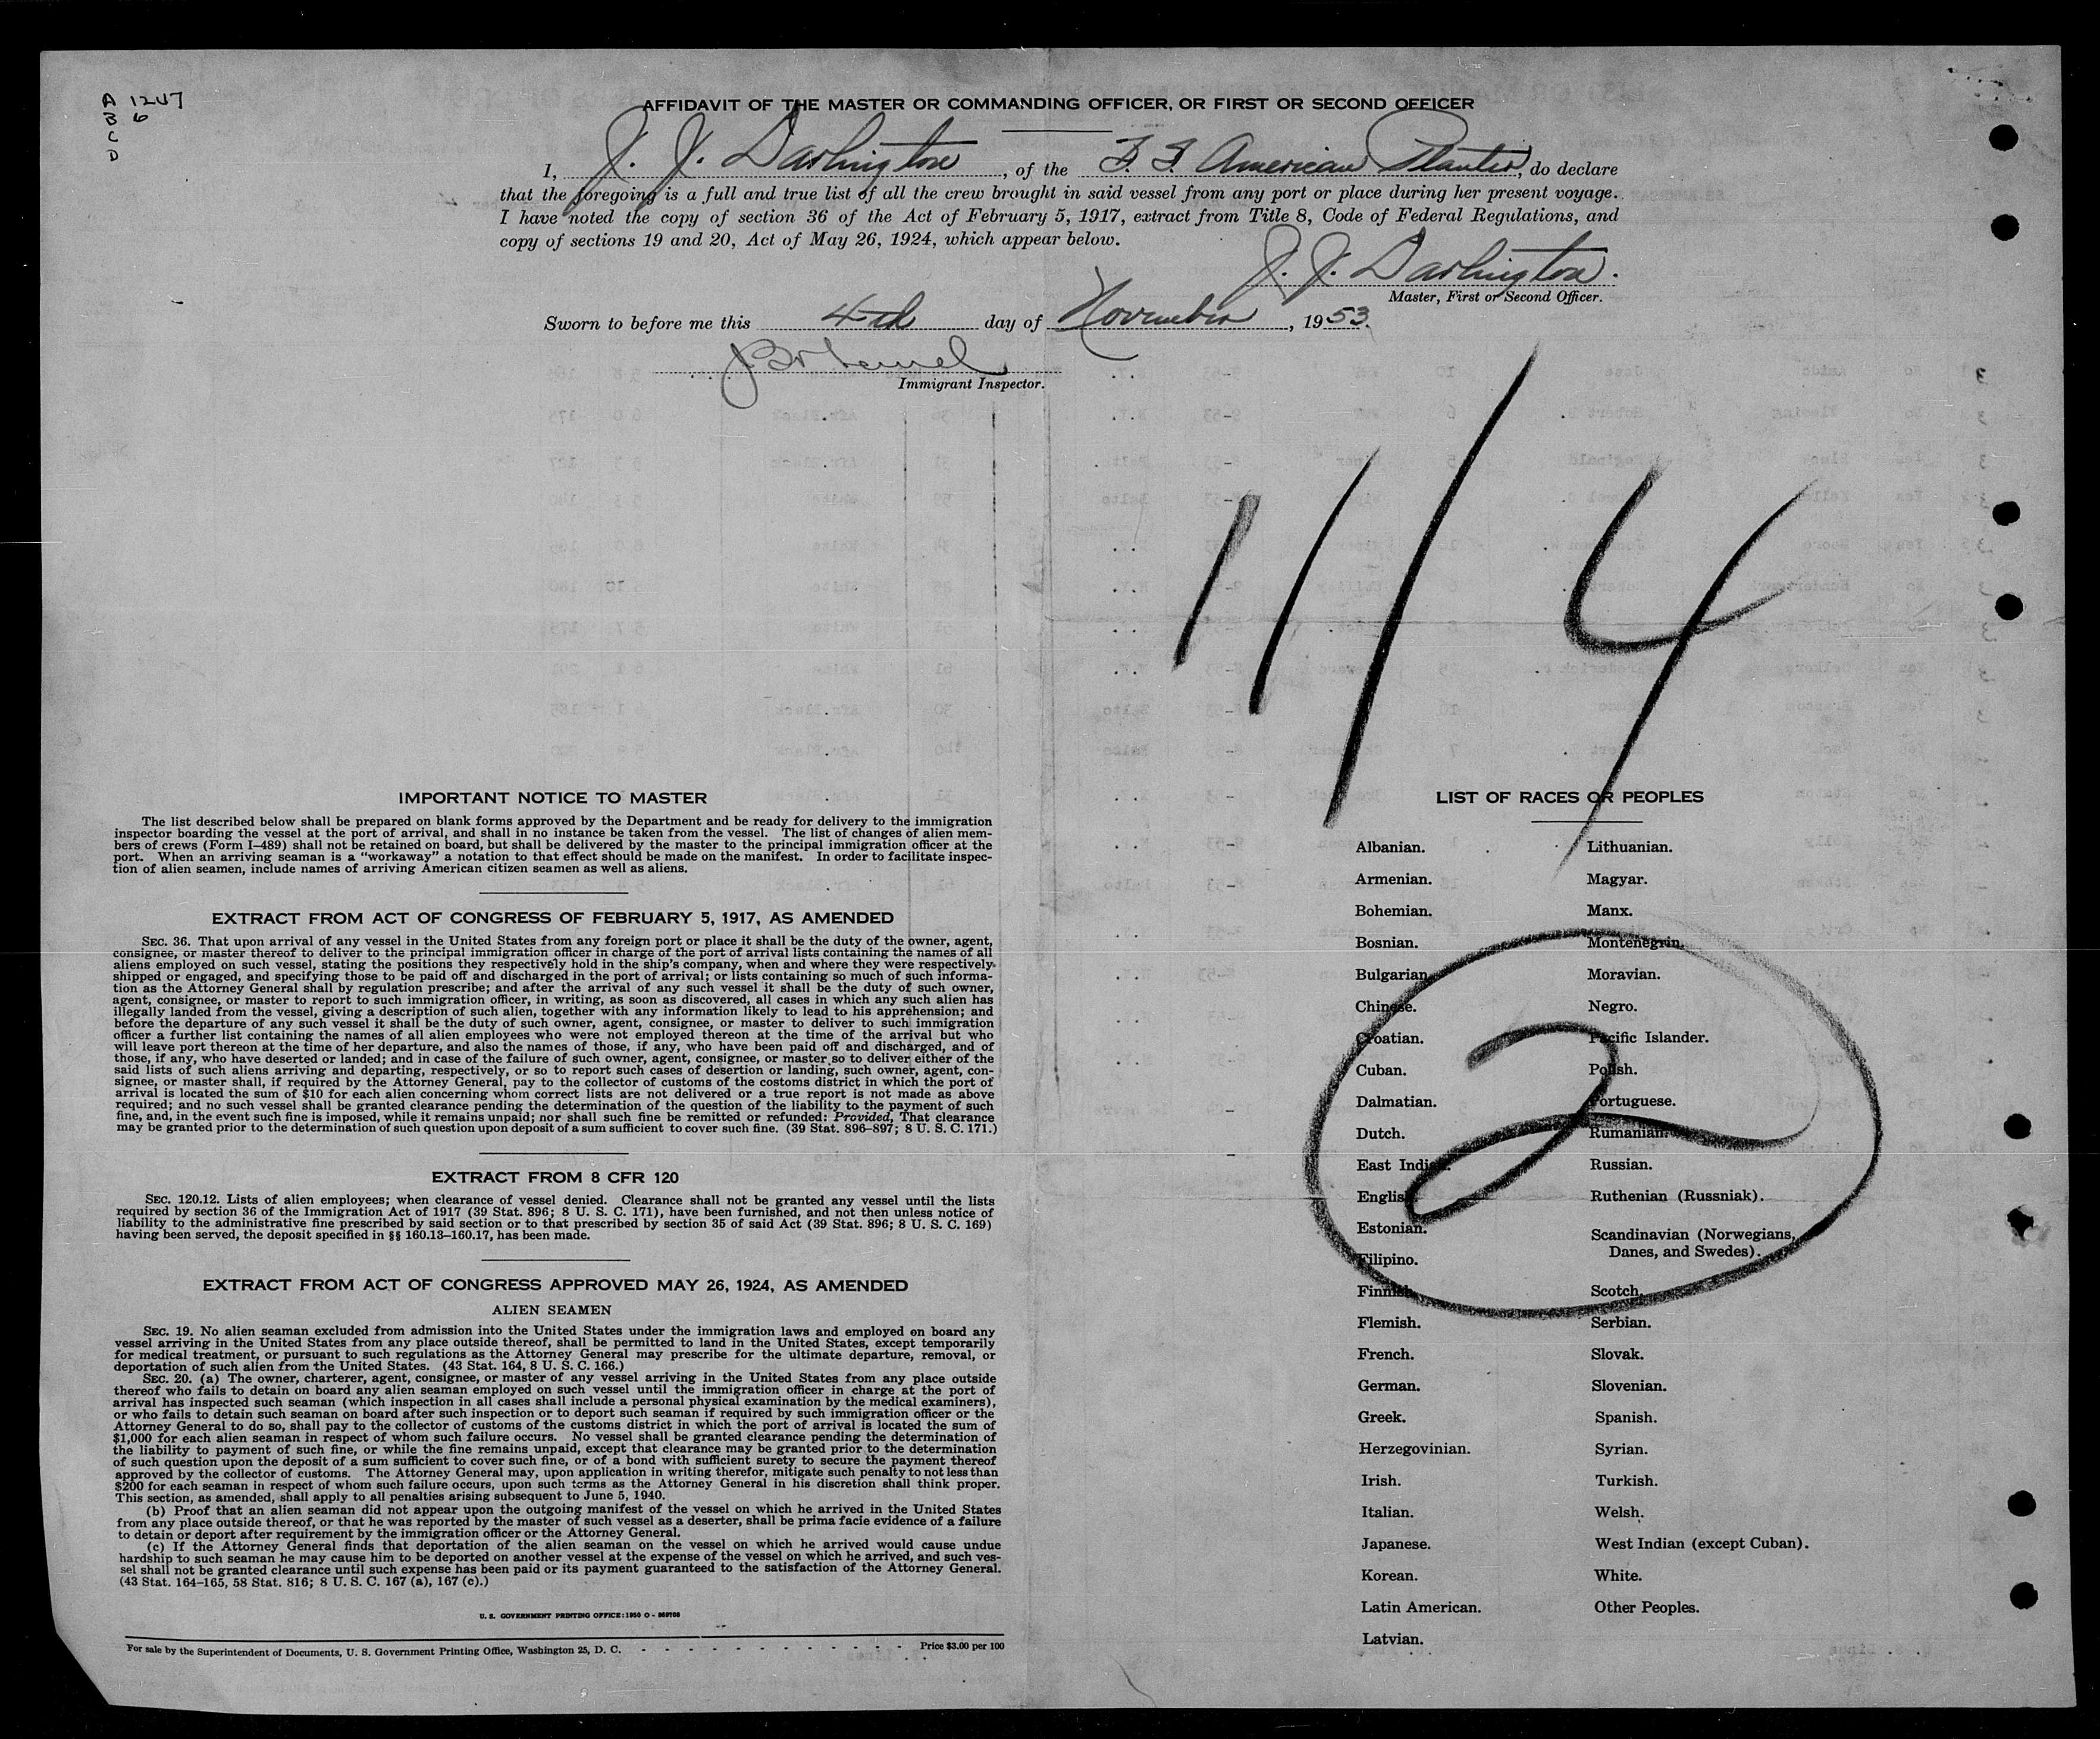 A 1247
B 6
C
D
AFFIDAVIT OF THE MASTER OR COMMANDING OFFICER, OR FIRST OR SECOND OFFICER
I, J. J. Darlington, of the S. S. American Planter, do declare
that the foregoing is a full and true list of all the crew brought in said vessel from any port or place during her present voyage.
I have noted the copy of section 36 of the Act of February 5, 1917, extract from Title 8, Code of Federal Regulations, and
copy of sections 19 and 20, Act of May 26, 1924, which appear below.
J. J. Darlington.
Master, First or Second Officer.
Sworn to before me this 4th day of November, 1953.
Immigrant Inspector.
11/4
2
IMPORTANT NOTICE TO MASTER
The list described below shall be prepared on blank forms approved by the Department and be ready for delivery to the immigration
inspector boarding the vessel at the port of arrival, and shall in no instance be taken from the vessel. The list of changes of alien mem-
bers of crews (Form I–489) shall not be retained on board, but shall be delivered by the master to the principal immigration officer at the
port. When an arriving seaman is a "workaway" a notation to that effect should be made on the manifest. In order to facilitate inspec-
tion of alien seamen, include names of arriving American citizen seamen as well as aliens.
EXTRACT FROM ACT OF CONGRESS OF FEBRUARY 5, 1917, AS AMENDED
SEC. 36. That upon arrival of any vessel in the United States from any foreign port or place it shall be the duty of the owner, agent,
consignee, or master thereof to deliver to the principal immigration officer in charge of the port of arrival lists containing the names of all
aliens employed on such vessel, stating the positions they respectively hold in the ship's company, when and where they were respectively
shipped or engaged, and specifying those to be paid off and discharged in the port of arrival; or lists containing so much of such informa-
tion as the Attorney General shall by regulation prescribe; and after the arrival of any such vessel it shall be the duty of such owner,
agent, consignee, or master to report to such immigration officer, in writing, as soon as discovered, all cases in which any such alien has
illegally landed from the vessel, giving a description of such alien, together with any information likely to lead to his apprehension; and
before the departure of any such vessel it shall be the duty of such owner, agent, consignee, or master to deliver to such immigration
officer a further list containing the names of all alien employees who were not employed thereon at the time of the arrival but who
will leave port thereon at the time of her departure, and also the names of those, if any, who have been paid off and discharged, and of
those, if any, who have deserted or landed; and in case of the failure of such owner, agent, consignee, or master so to deliver either of the
said lists of such aliens arriving and departing, respectively, or so to report such cases of desertion or landing, such owner, agent, con-
signee, or master shall, if required by the Attorney General, pay to the collector of customs of the costoms district in which the port of
arrival is located the sum of $10 for each alien concerning whom correct lists are not delivered or a true report is not made as above
required; and no such vessel shall be granted clearance pending the determination of the question of the liability to the payment of such
fine, and, in the event such fine is imposed, while it remains unpaid; nor shall such fine be remitted or refunded: Provided, That clearance
may be granted prior to the determination of such question upon deposit of a sum sufficient to cover such fine. (39 Stat. 896–897; 8 U. S. C. 171.)
EXTRACT FROM 8 CFR 120
SEC. 120.12. Lists of alien employees; when clearance of vessel denied. Clearance shall not be granted any vessel until the lists
required by section 36 of the Immigration Act of 1917 (39 Stat. 896; 8 U. S. C. 171), have been furnished, and not then unless notice of
liability to the administrative fine prescribed by said section or to that prescribed by section 35 of said Act (39 Stat. 896; 8 U. S. C. 169)
having been served, the deposit specified in §§ 160.13–160.17, has been made.
EXTRACT FROM ACT OF CONGRESS APPROVED MAY 26, 1924, AS AMENDED
ALIEN SEAMEN
SEC. 19. No alien seaman excluded from admission into the United States under the immigration laws and employed on board any
vessel arriving in the United States from any place outside thereof, shall be permitted to land in the United States, except temporarily
for medical treatment, or pursuant to such regulations as the Attorney General may prescribe for the ultimate departure, removal, or
deportation of such alien from the United States. (43 Stat. 164, 8 U. S. C. 166.)
SEC. 20. (a) The owner, charterer, agent, consignee, or master of any vessel arriving in the United States from any place outside
thereof who fails to detain on board any alien seaman employed on such vessel until the immigration officer in charge at the port of
arrival has inspected such seaman (which inspection in all cases shall include a personal physical examination by the medical examiners),
or who fails to detain such seaman on board after such inspection or to deport such seaman if required by such immigration officer or the
Attorney General to do so, shall pay to the collector of customs of the customs district in which the port of arrival is located the sum of
$1,000 for each alien seaman in respect of whom such failure occurs. No vessel shall be granted clearance pending the determination of
the liability to payment of such fine, or while the fine remains unpaid, except that clearance may be granted prior to the determination
of such question upon the deposit of a sum sufficient to cover such fine, or of a bond with sufficient surety to secure the payment thereof
approved by the collector of customs. The Attorney General may, upon application in writing therefor, mitigate such penalty to not less than
$200 for each seaman in respect of whom such failure occurs, upon such terms as the Attorney General in his discretion shall think proper.
This section, as amended, shall apply to all penalties arising subsequent to June 5, 1940.
(b) Proof that an alien seaman did not appear upon the outgoing manifest of the vessel on which he arrived in the United States
from any place outside thereof, or that he was reported by the master of such vessel as a deserter, shall be prima facie evidence of a failure
to detain or deport after requirement by the immigration officer or the Attorney General.
(c) If the Attorney General finds that deportation of the alien seaman on the vessel on which he arrived would cause undue
hardship to such seaman he may cause him to be deported on another vessel at the expense of the vessel on which he arrived, and such ves-
sel shall not be granted clearance until such expense has been paid or its payment guaranteed to the satisfaction of the Attorney General.
(43 Stat. 164–165, 58 Stat. 816; 8 U. S. C. 167 (a), 167 (c).)
U. S. GOVERNMENT PRINTING OFFICE: 1950 O -
For sale by the Superintendent of Documents, U. S. Government Printing Office, Washington 25, D. C. - - - - - - - - - - - - Price $3.00 per 100
LIST OF RACES OR PEOPLES
Albanian. Lithuanian.
Armenian. Magyar.
Bohemian. Manx.
Bosnian. Montenegrin.
Bulgarian. Moravian.
Chinese. Negro.
Croatian. Pacific Islander.
Cuban. Polish.
Dalmatian. Portuguese.
Dutch. Rumanian.
East Indian. Russian.
English. Ruthenian (Russniak).
Estonian. Scandinavian (Norwegians,
Danes, and Swedes).
Filipino.
Finnish. Scotch.
Flemish. Serbian.
French. Slovak.
German. Slovenian.
Greek. Spanish.
Herzegovinian. Syrian.
Irish. Turkish.
Italian. Welsh.
Japanese. West Indian (except Cuban).
Korean. White.
Latin American. Other Peoples.
Latvian.